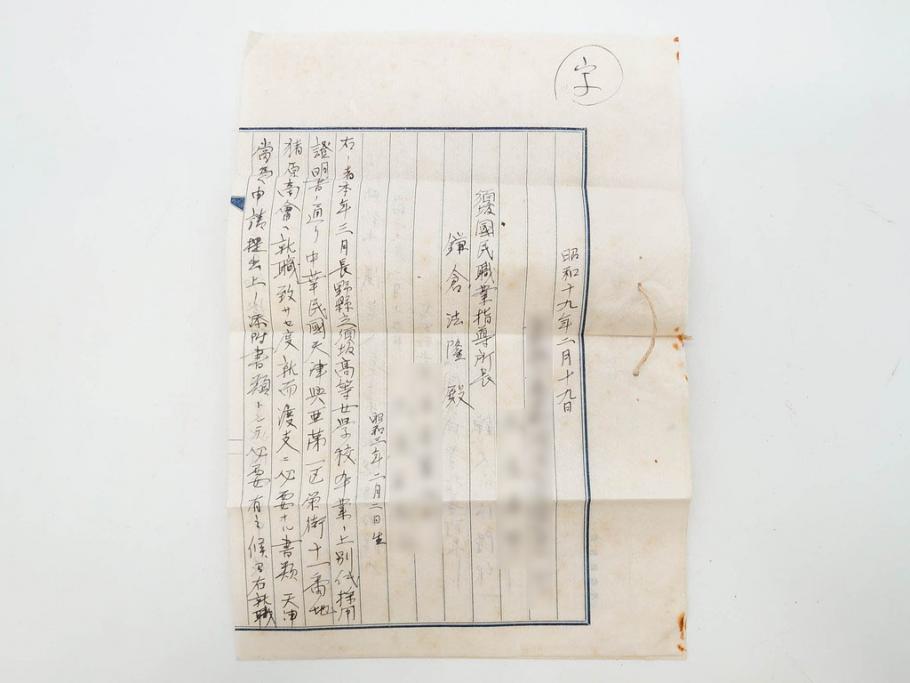 字
昭和十九年二月十九日
須坂國民職業指導所長
鎌倉法隆殿
昭和二年二月二日生
右ノ者本年三月長野縣立須坂高等女學校卒業ノ上別紙採用
證明書ノ通リ中華民國天津興亜第一区栄街十一番地
猪原商會ヘ就職致サセ度就而渡支ニ必要ナル書類
申請提出上ノ添附書類トシテ必要有之候間右就職